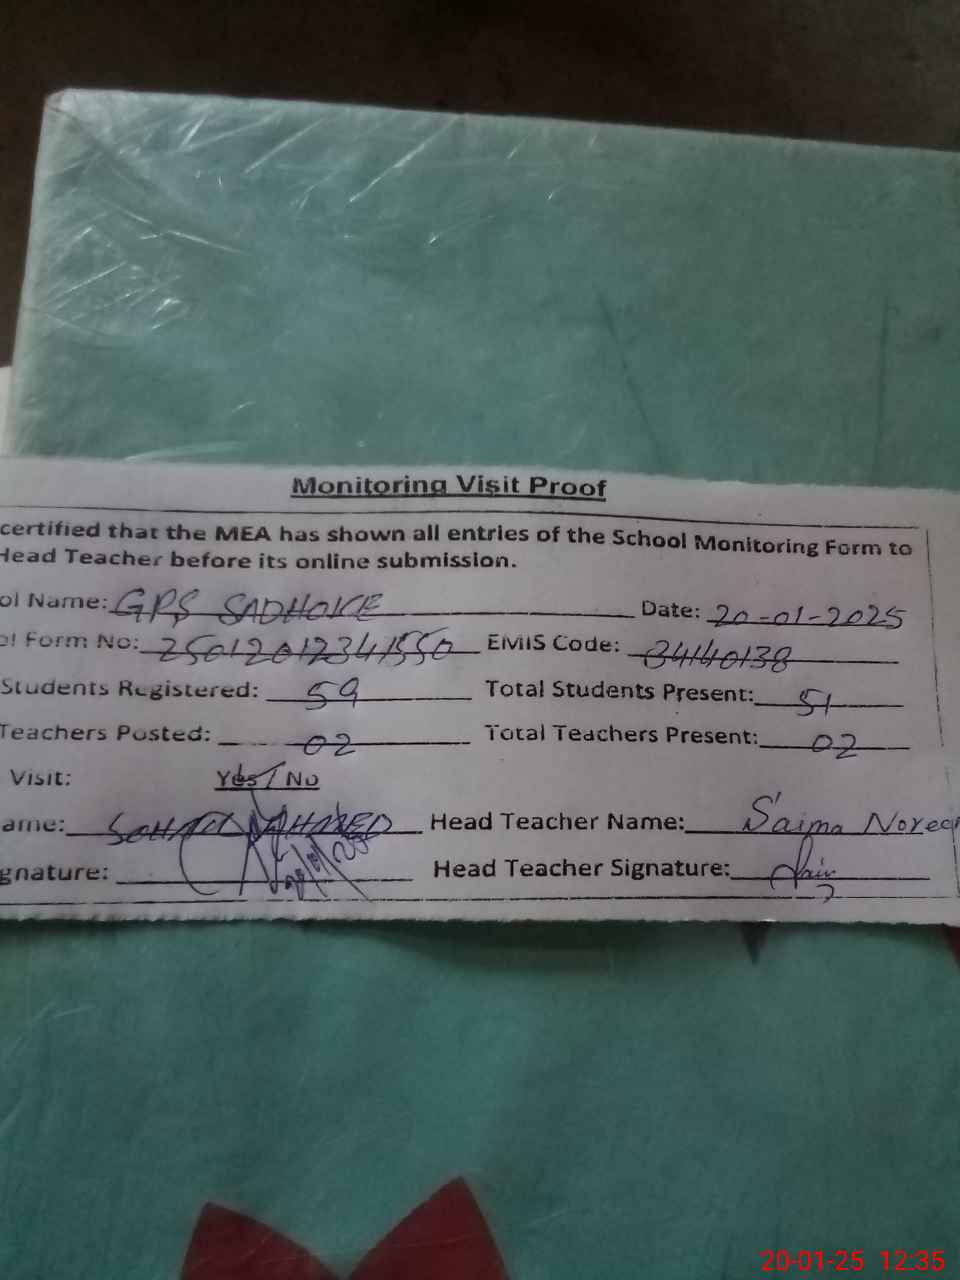 Monitoring Visit Proof
certified that the MEA has shown all entries of the School Monitoring Form to
Head Teacher before its online submission.
ol Name: GPS SADHOKE Date: 20-01-2025
ol Form No: 25012012341550 EMIS Code: 34140138
Students Registered: 59 Total Students Present: 51
Teachers Posted: 02 Total Teachers Present: 02
Visit: Yes / No
ame: SOHAIL AHMED Head Teacher Name: Saima Noreen
gnature: Head Teacher Signature:
20-01-25 12:35